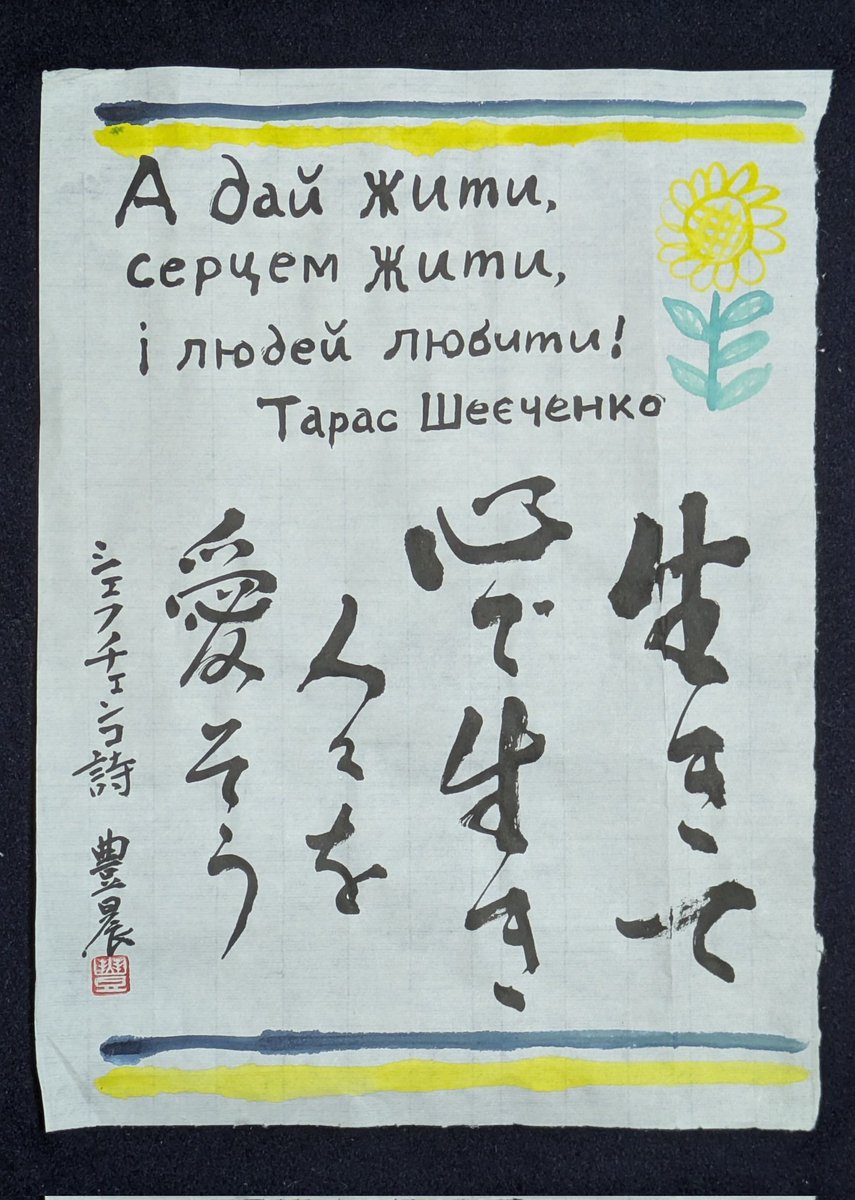 А дай жити,
серцем жити,
і людей любити!
Тарас Шеєченко
生きて
心で生き
人々を
愛そう
シェフチェンコ詩 豊晨
豊